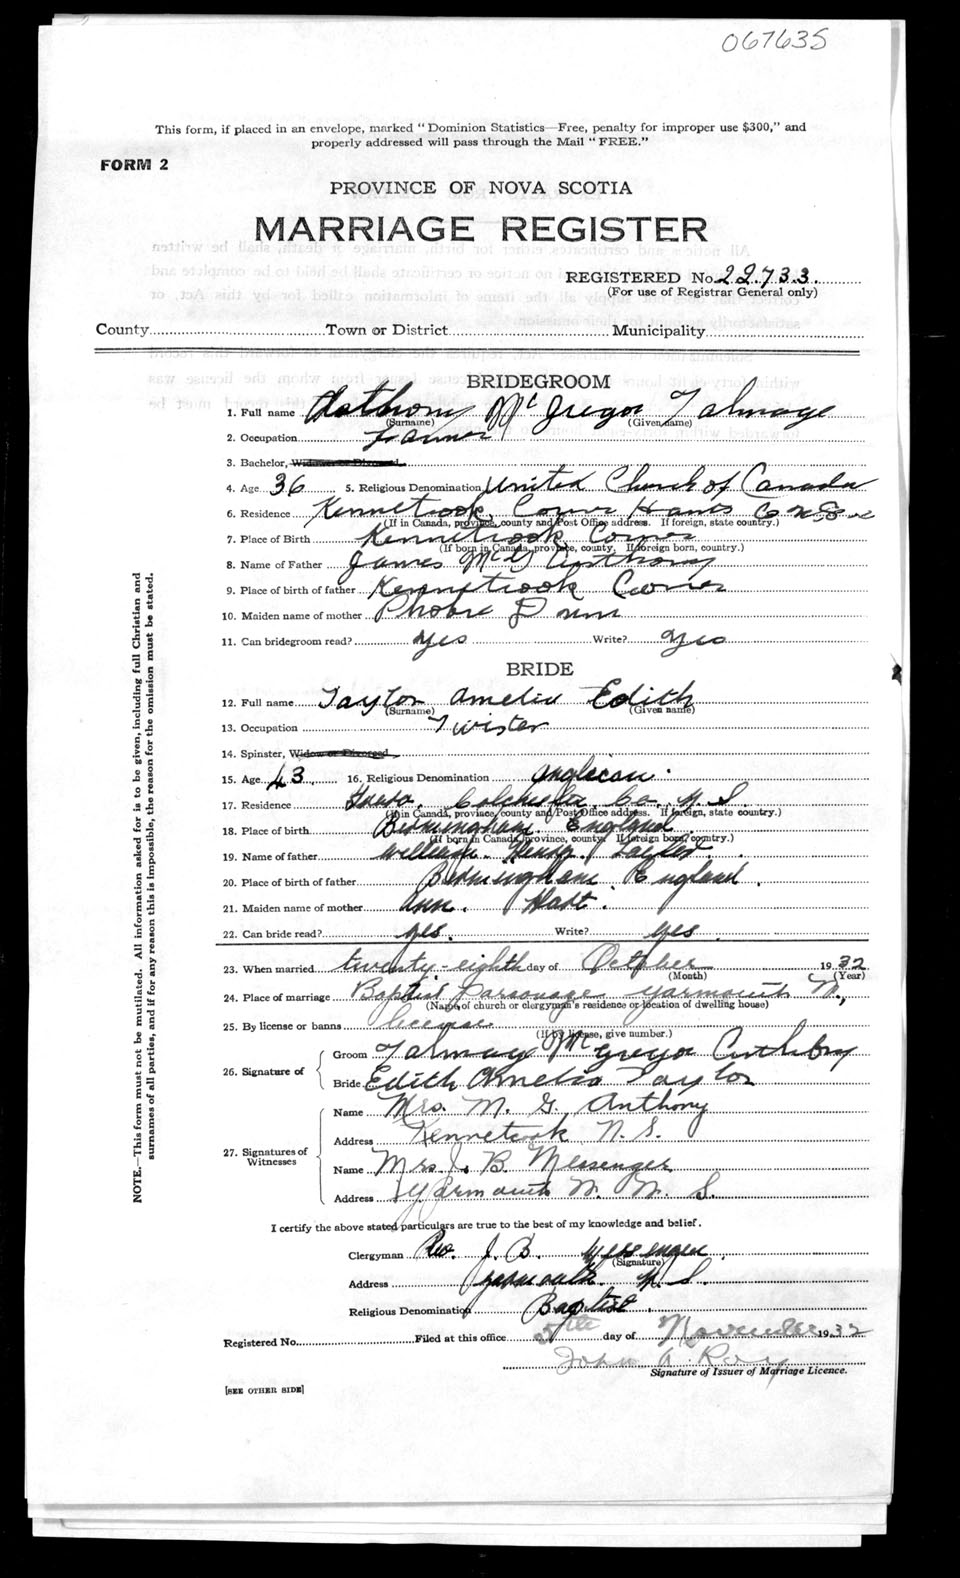 067635
This form, if placed in an envelope, marked “Dominion Statistics—Free, penalty for improper use $300,” and
properly addressed will pass through the Mail “FREE.”
FORM 2
PROVINCE OF NOVA SCOTIA
MARRIAGE REGISTER
REGISTERED No. 22733
(For use of Registrar General only)
County Town or District Municipality
BRIDEGROOM
1. Full name Anthony McGregor Talmage
(Surname) (Given name)
2. Occupation Farmer
3. Bachelor, Widower or Divorced
4. Age 36 5. Religious Denomination United Church of Canada
6. Residence Kennetcook Corner Hants Co
(If in Canada, province, county and Post Office address. If foreign, state country.)
7. Place of Birth Kennetcook Corner
(If born in Canada, province, county. If foreign born, country.)
8. Name of Father James McG Anthony
9. Place of birth of father Kennetcook Corner
10. Maiden name of mother Phobie
11. Can bridegroom read? Yes Write? Yes
BRIDE
12. Full name Taylor Amelia Edith
(Surname) (Given name)
13. Occupation Twister
14. Spinster, Widow or Divorced
15. Age 43 16. Religious Denomination Anglican.
17. Residence Truro. Colchester Co. N.S.
(If in Canada, province, county and Post Office address. If foreign, state country.)
18. Place of birth Birmingham. England.
(If born in Canada, province, county. If foreign born, country.)
19. Name of father William Henry Taylor
20. Place of birth of father Birmingham. England.
21. Maiden name of mother Ann. Hart.
22. Can bride read? yes. Write? yes.
23. When married twenty-eighth day of October 1932
(Month) (Year)
24. Place of marriage Baptist Parsonage Yarmouth N,
(Name of church or clergyman's residence or location of dwelling house)
25. By license or banns license
(If by license, give number.)
26. Signature of Groom Talmage McGregor Anthony
Bride Edith Amelia Taylor
27. Signatures of Witnesses Name Mrs. M. G. Anthony
Address Kennetcook N.S.
Name Mrs. J. B. Messenger
Address Yarmouth N. N. S.
I certify the above stated particulars are true to the best of my knowledge and belief.
Clergyman Rev. J. B. Messenger.
(Signature)
Address Yarmouth N.S.
Religious Denomination Baptist.
Registered No. Filed at this office 5th day of November 1932
John A. Ray
Signature of Issuer of Marriage Licence.
[SEE OTHER SIDE]
NOTE.—This form must not be mutilated. All information asked for is to be given, including full Christian and
surnames of all parties, and if for any reason this is impossible, the reason for the omission must be stated.